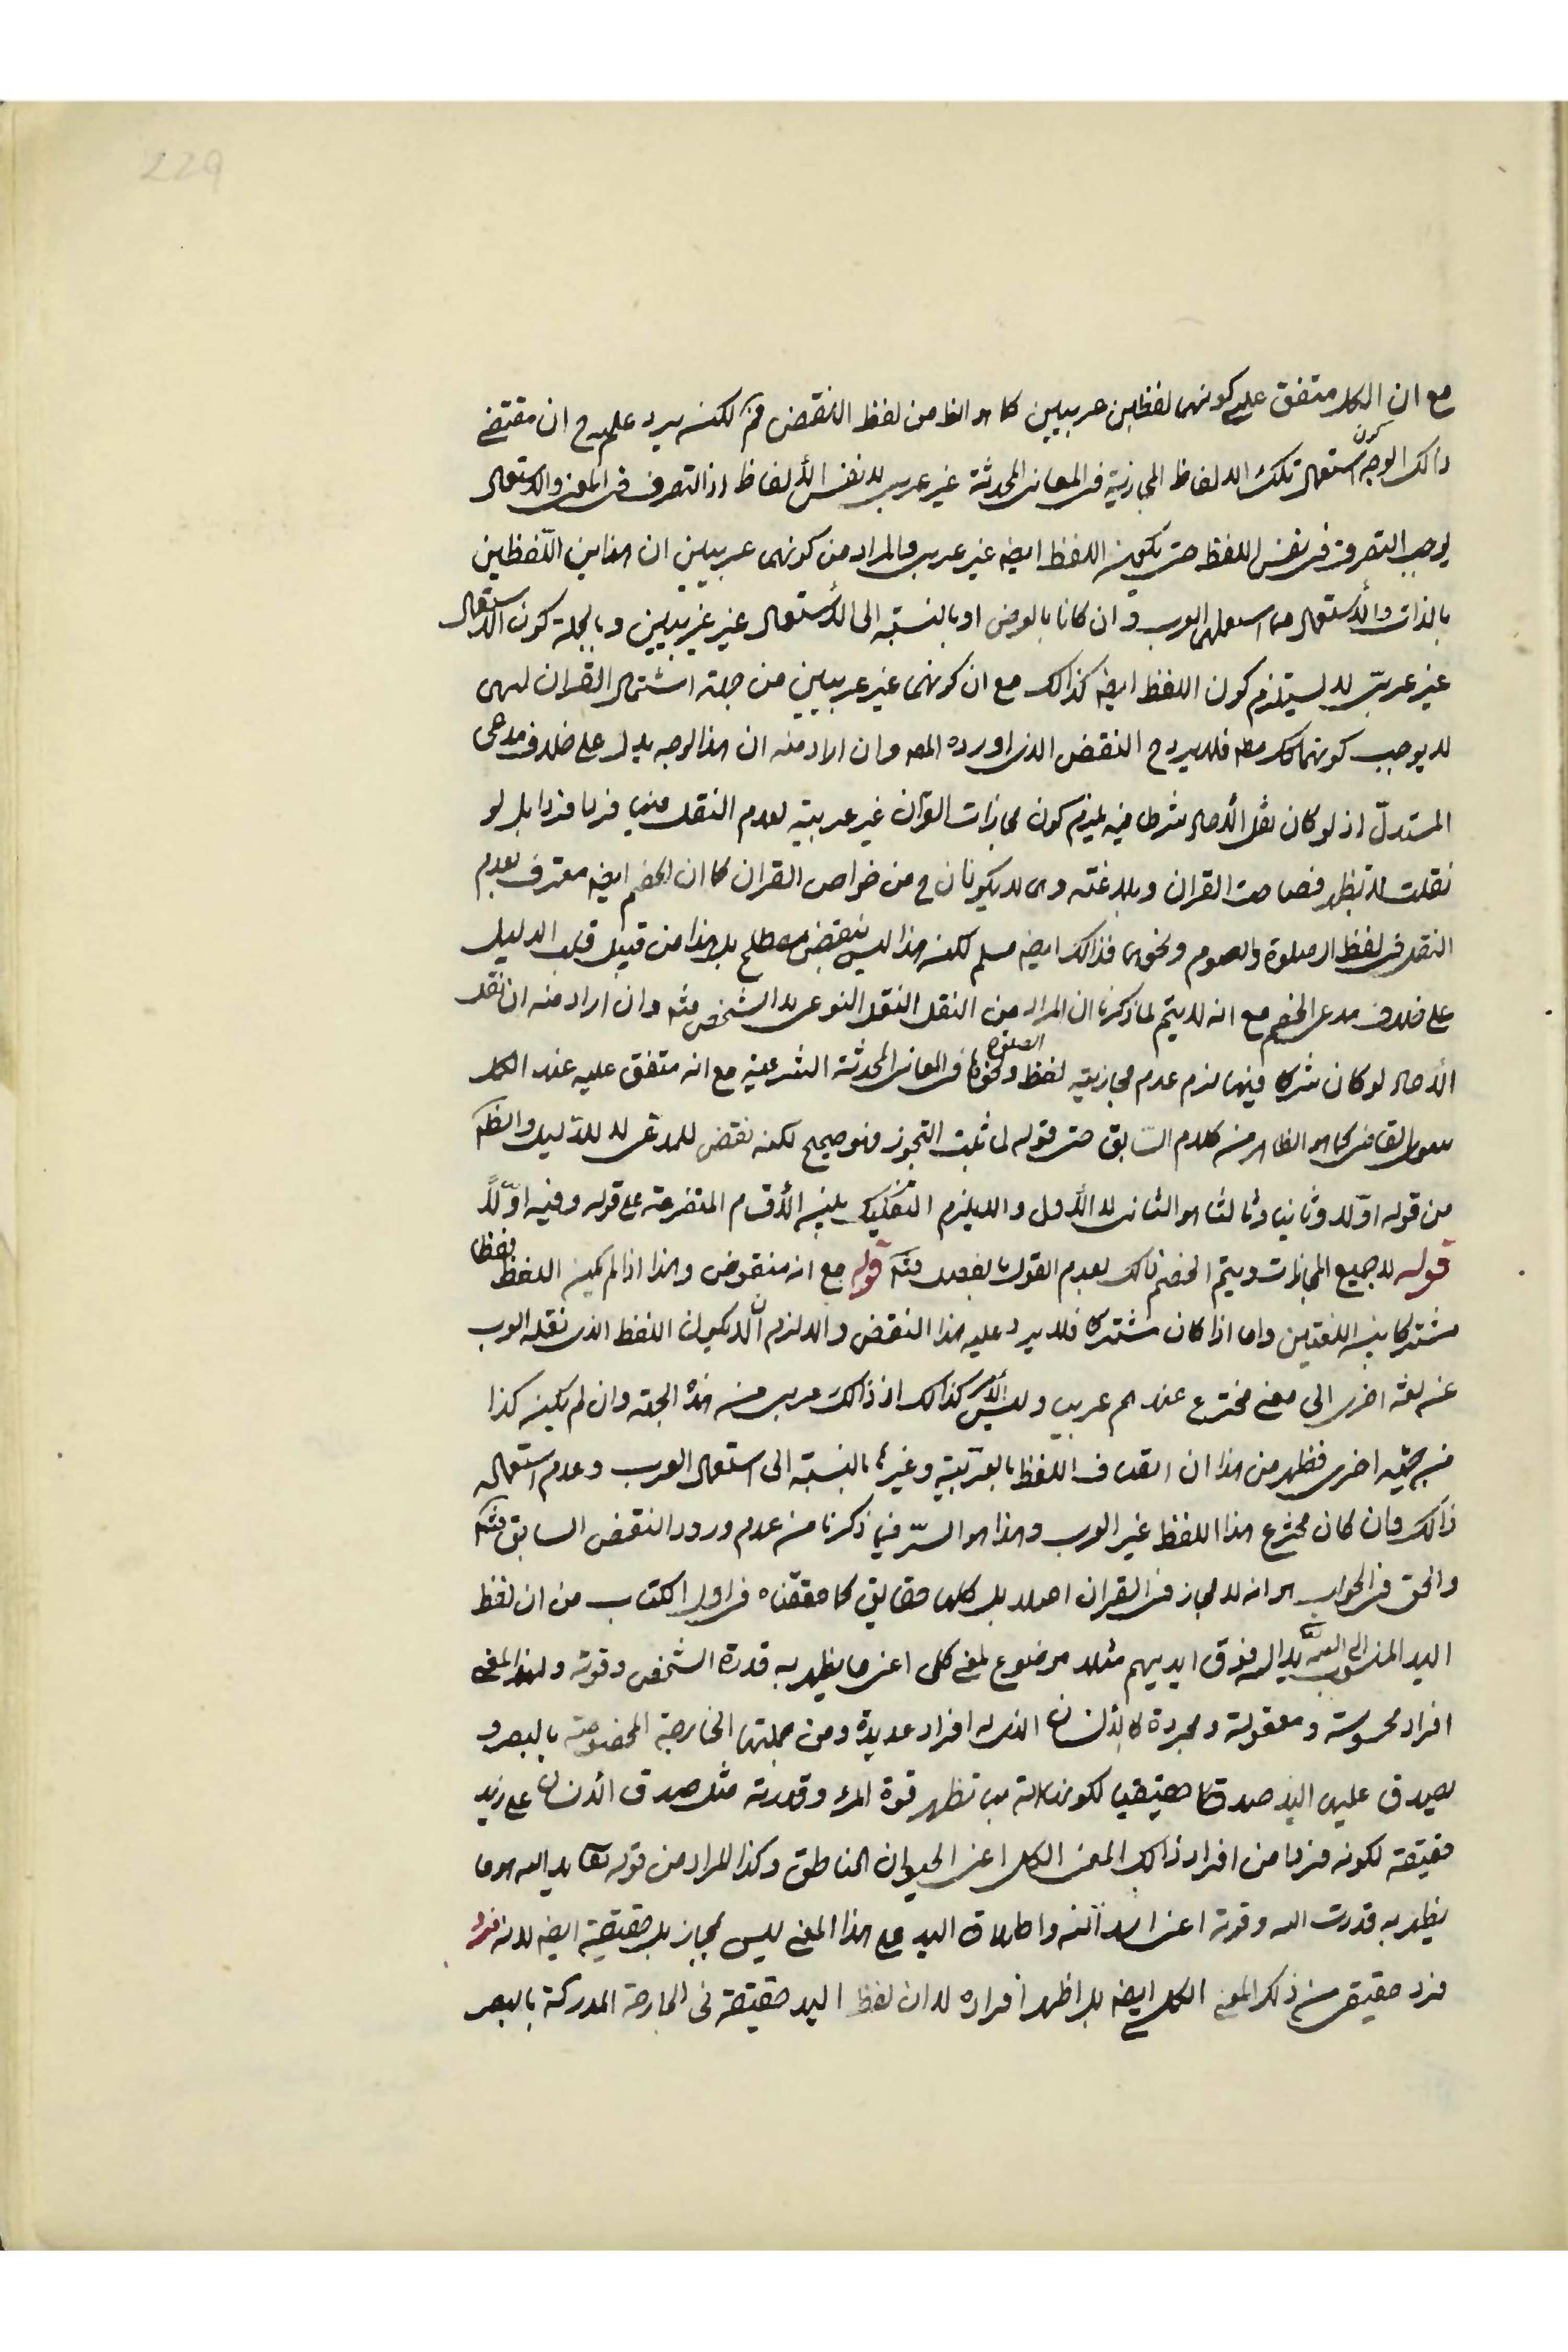 229
مع ان الكل متفق على كونهما لفظين عربيين كما هو الظ من لفظ النقض فتم لكنه يرد عليه ح ان مقتضى
ذالك الوجه كون استعمال تلك الالفاظ المجازية فى المعانى المحدثة غير عربى لا نفس الألفاظ اذ التصرف فى المعنى والاستعمال
لا يوجب التصرف فى نفس اللفظ حتى يكون اللفظ ايضه غير عربى والمراد من كونهما عربيين ان هذين اللفظين
بالذات والأستعمال مما استعملهما العرب و ان كانا بالعرض او بالنسبة الى الأستعمال غير عربيين وبالجملة كون الاستعمال
غير عربىّ لا يستلزم كون اللفظ ايضه كذالك مع ان كونهما غير عربيين من جهة اشتمال القران لهما
لا يوجب كونهما كك مطه فلا يرد ح النقض الذى اورده المصه وان اراد منه ان هذا الوجه يدل على خلاف مدعى
المستدلّ اذ لو كان نقل الأحاد شرطا فيه يلزم كون مجازات القرآن غير عربية لعدم النقل فيها فردا فردا بل لو
نقلت لا تظهر فصاحت القران وبلاغته وهى لا يكونان ح من خواص القران كما ان الخصم ايضه معترف بعدم
النقل فى لفظ الصلوة والصوم ونحوها فذالك ايضه مسلم لكنه هذا ليس بنقض مصطلح بل هذا من قبيل قلب الدليل
على خلاف مدعى الخصم مع انه لا يتم لما ذكرنا ان المراد من النقل النقل النوعى لا الشخصى فتم وان اراد منه ان نقل
الأحاد لو كان شرطا فيها يلزم عدم مجازيته لفظ الصلوة ونحوها فى المعانى المحدثة الشرعية مع انه متفق عليه عند الكل
القاضى كما هو الظاهر من كلام السابق حتى قوله لما ثبت التجوز فهو صحيح لكنه نقض للمدعى لا للدّليل والظم
من قوله اوّلا وثانيا وثالثا هو الثانى لا الأول والا يلزم التفكيك بين الأقسام المتفرعة على قوله وفيه اوّلاً
قوله لا جميع المجازات ويتم الخصم ذالك بعدم القول بالفصل فتم قوله مع انه منقوض وهذا اذا لم يكن اللفظ لفظا
مشتركا بين اللغتين واما اذا كان مشتركا فلا يرد عليه هذا النقض والا لزم ان لا يكون اللفظ الذى نقله العرب
عن لغة اخرى الى معنى مخترع عندهم عربيا وليس الأمر كذالك اذ ذالك عربى من هذه الجهة وان لم يكن كذا
من جهة اخرى فظهر من هذا ان اتصاف اللفظ بالعربية وغيرها بالنسبة الى استعمال العرب وعدم استعماله
ذالك وان كان مخترع هذا اللفظ غير العرب وهذا هو السّر فيما ذكرنا من عدم ورود النقض السابق فتم
والحق فى الجواب هو انه لا مجاز فى القران اصلا بل كلها حقايق كما حققناه فى اول الكتاب من ان لفظ
اليد المنسوب الى الله يد الله فوق ايديهم مثلا موضوع لمعنى كلى اعنى ما يظهر به قدرة الشخص وقوته ولهذا المعنى
افراد محسوسة ومعقولة ومجردة كالأنسان الذى له افراد عديدة ومن جملتها الخارجية المخصوصة بالبصر و
يصدق عليها اليد صدقا حقيقيا لكونها الة بها تظهر قوة المرء وقدرته مثل صدق الأنسان على زيد
حقيقة لكونه فردا من افراد ذالك المعنى الكلى اعنى الحيوان الناطق وكذا المراد من قوله تعا يد الله هو ما
يظهر به قدرت الله وقوته اعنى واطلاق اليد على هذا المعنى ليس بمجاز بل حقيقة ايضه لانه فرد
فرد حقيقى من ذلك المعنى الكلى ايضه بل اظهر افراده لا ان لفظ اليد حقيقة فى الجارحة المدركة بالبصر